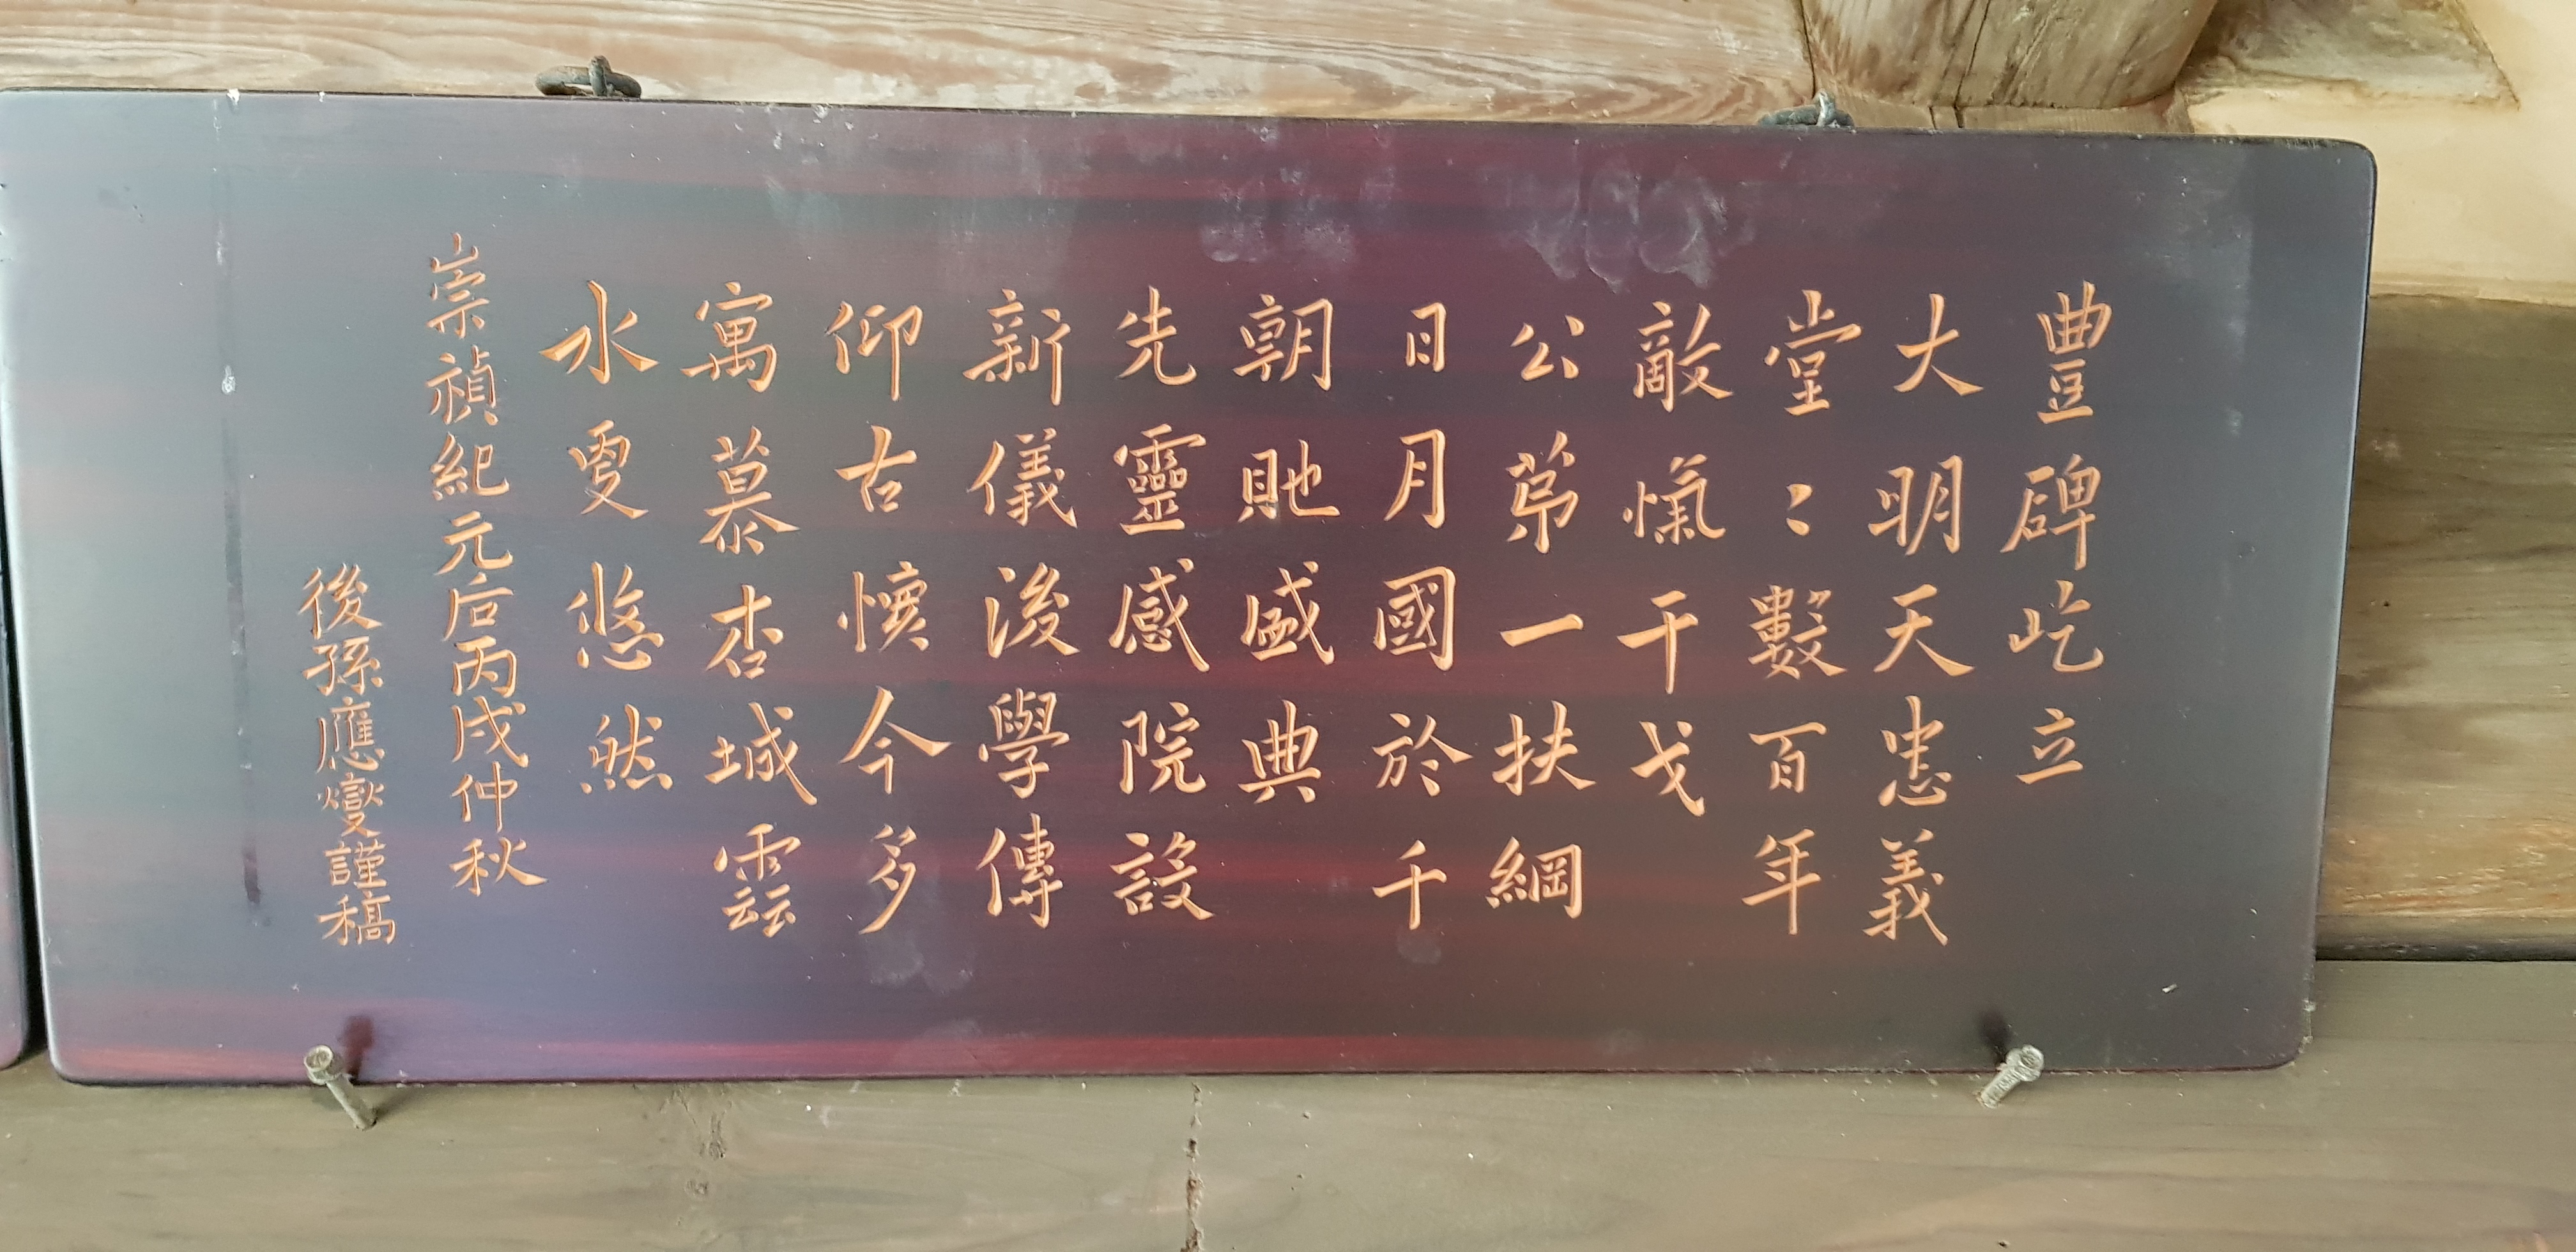 豊碑屹立
大明天忠義
堂〻數百年
敵愾干戈
公苐一扶綱
日月國於千
朝貤盛典
先靈感院設
新儀浚學傳
仰古懷今多
寓慕杏城雲
水夐悠然
崇禎紀元后丙戌仲秋
後孫應燮謹稿